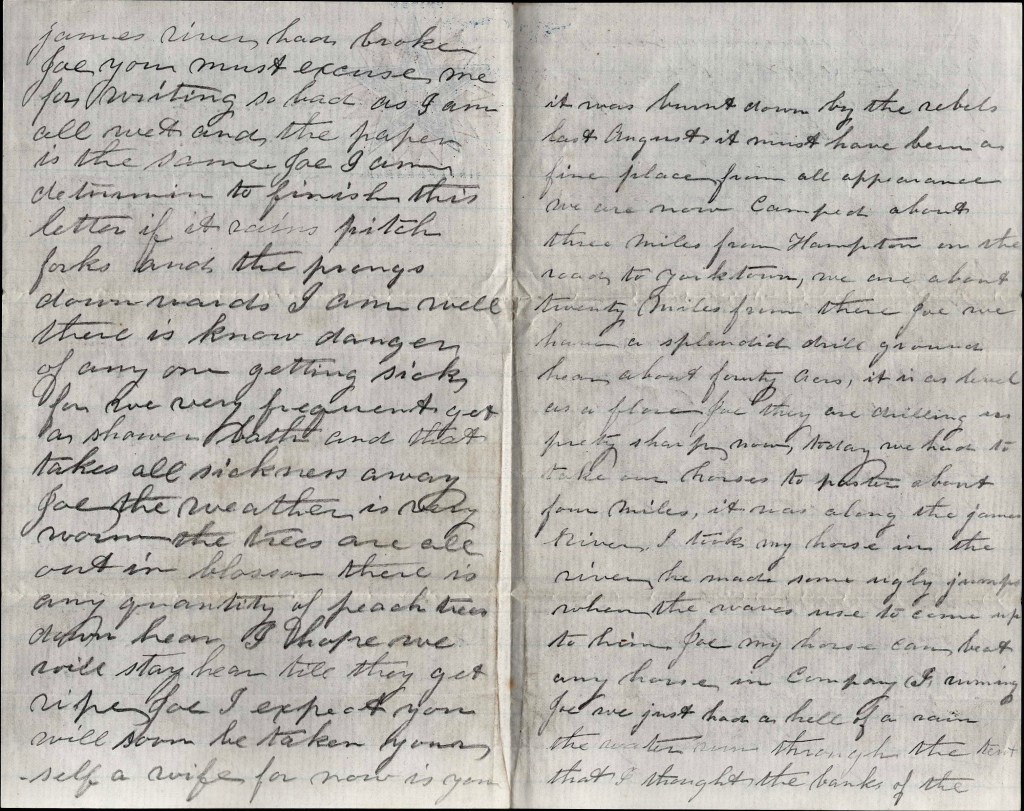 james river had broke
Joe you must excuse me
for writing so bad as I am
all wet and the paper
is the same Joe I am
determin to finish this
letter if it rains pitch
forks and the prongs
downwards I am well
there is know danger
of any one getting sick
for we very frequent get
a shower bath and that
takes all sickness away
Joe the weather is very
worm the trees are all
out in blossom there is
any quantity of peach trees
down hear I hope we
will stay hear till they get
ripe Joe I expect you
will soon be taken your
self a wife for now is you
it was burnt down by the rebels
last August it must have been a
fine place from all appearance
we are now Camped about
three miles from Hampton on the
road to yorktown, we are about
twenty miles from there Joe we
have a splendid drill ground
hear about fourty Acers, it is as level
as a floor Joe they are drilling us
pretty sharp now, today we had to
take our horses to paster about
four miles, it was along the james
River I took my horse in the
river he made some ugly jumps
when the waves use to come up
to him Joe my horse can beat
any horse in Company I runing
Joe we just had a hell of a rain
the water run through the tent
that I thought the banks of the